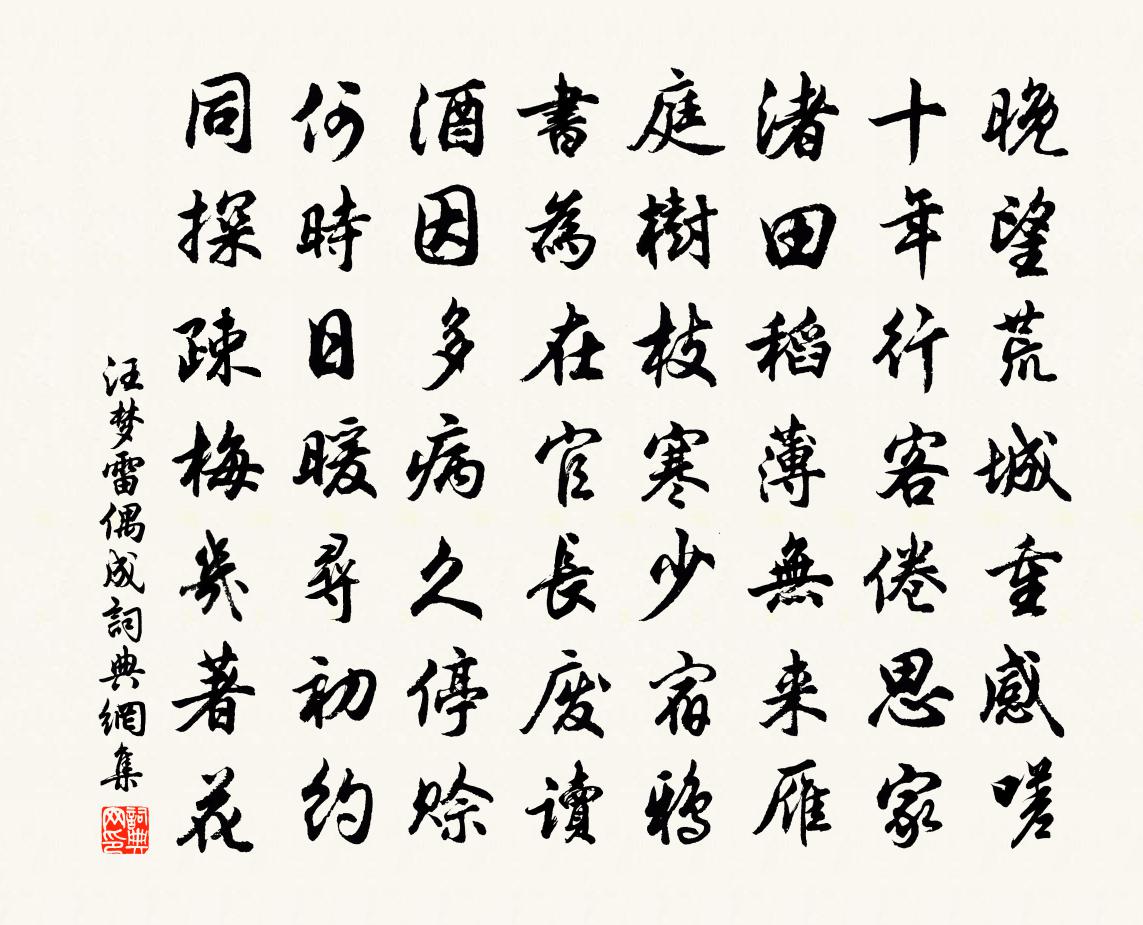 晚望荒城重感嗟
十年行客倦思家
渚田稻薄無来雁
庭樹枝寒少宿鴉
書為在官長廢讀
酒因多病久停賒
何時日暖尋初約
同探疎梅幾著花
汪梦雷偶成詞典網集
詞典网印